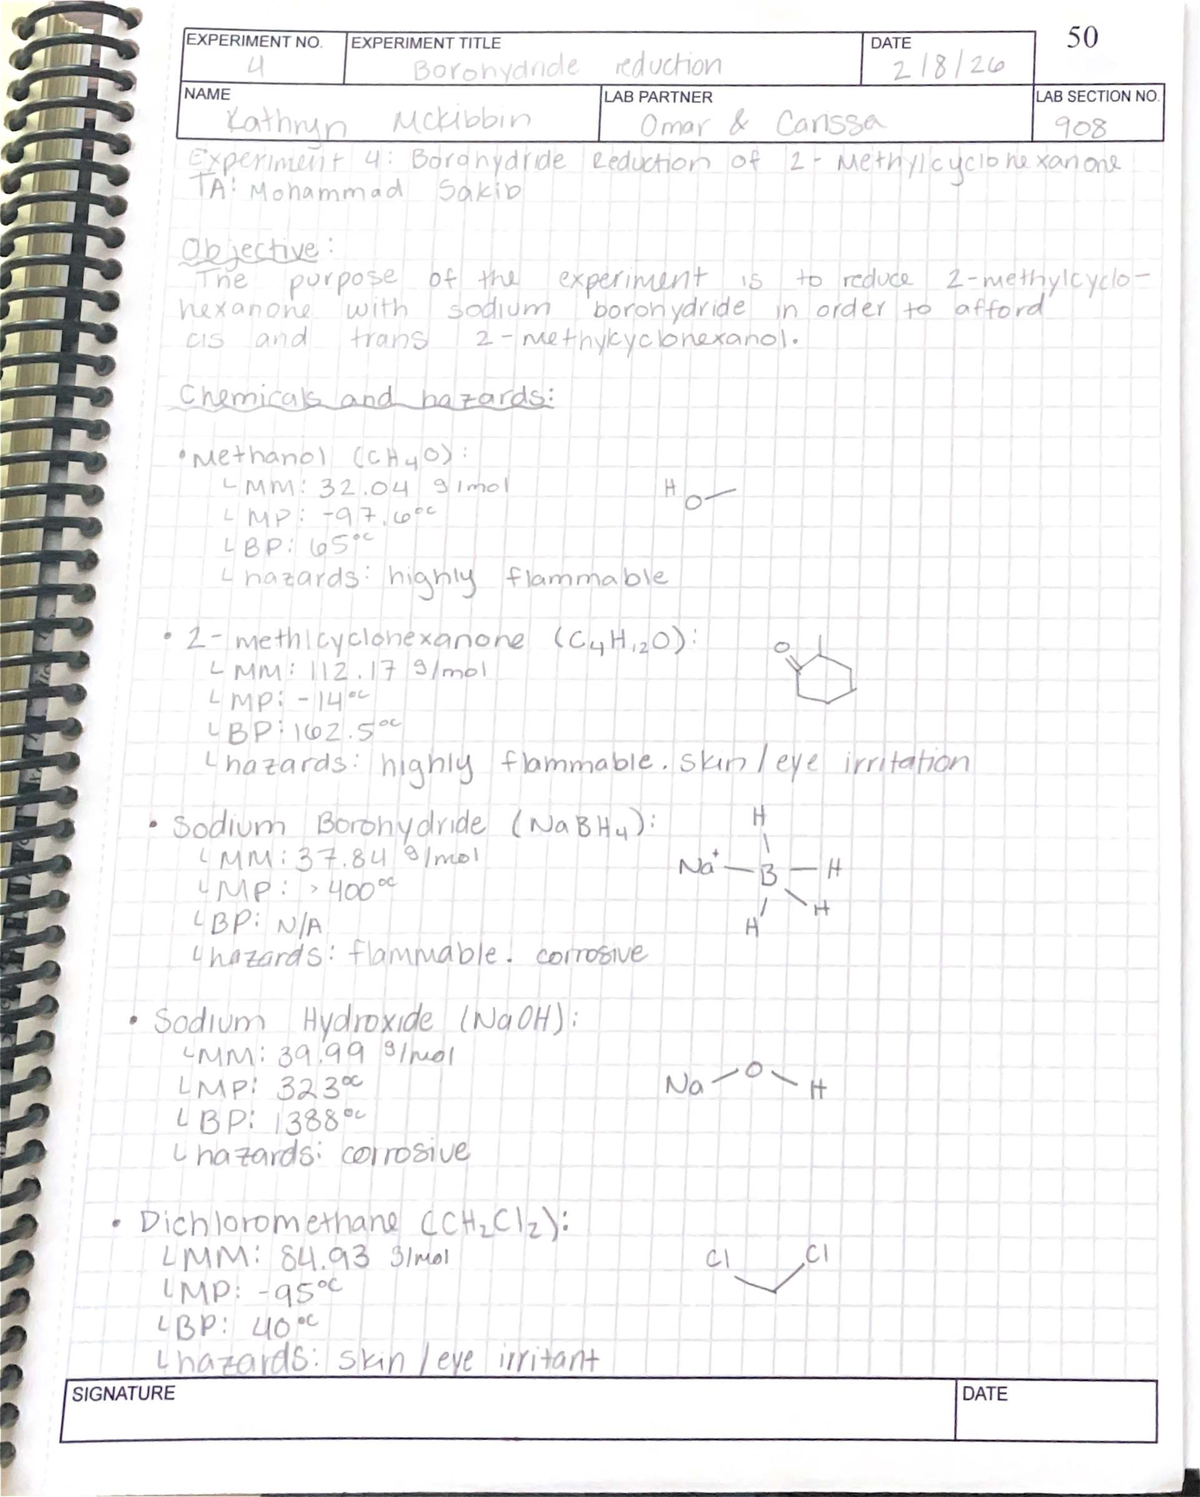 50
EXPERIMENT NO. EXPERIMENT TITLE DATE
4 Borohydride reduction 2/8/26
NAME LAB PARTNER LAB SECTION NO.
Kathryn McKibbin Omar & Carissa 908
Experiment 4: Borohydride Reduction of 2-Methylcyclohexanone
TA: Mohammad Sakib
Objective:
The purpose of the experiment is to reduce 2-methylcyclo-
hexanone with sodium borohydride in order to afford
cis and trans 2-methylcyclohexanol.
Chemicals and hazards:
• Methanol (CH₄O):
└ MM: 32.04 g/mol
└ MP: -97.6°C
└ BP: 65°C
└ hazards: highly flammable
H
O
• 2-methlcyclohexanone (C₄H₁₂O):
└ MM: 112.17 g/mol
└ MP: -14°C
└ BP: 162.5°C
└ hazards: highly flammable. skin/eye irritation
O
• Sodium Borohydride (NaBH₄):
└ MM: 37.84 g/mol
└ MP: >400°C
└ BP: N/A
└ hazards: flammable. corrosive
H
Na⁺ — B — H
H H
• Sodium Hydroxide (NaOH):
└ MM: 39.99 g/mol
└ MP: 323°C
└ BP: 1388°C
└ hazards: corrosive
Na O H
• Dichloromethane (CH₂Cl₂):
└ MM: 84.93 g/mol
└ MP: -95°C
└ BP: 40°C
└ hazards: skin/eye irritant
Cl Cl
SIGNATURE DATE